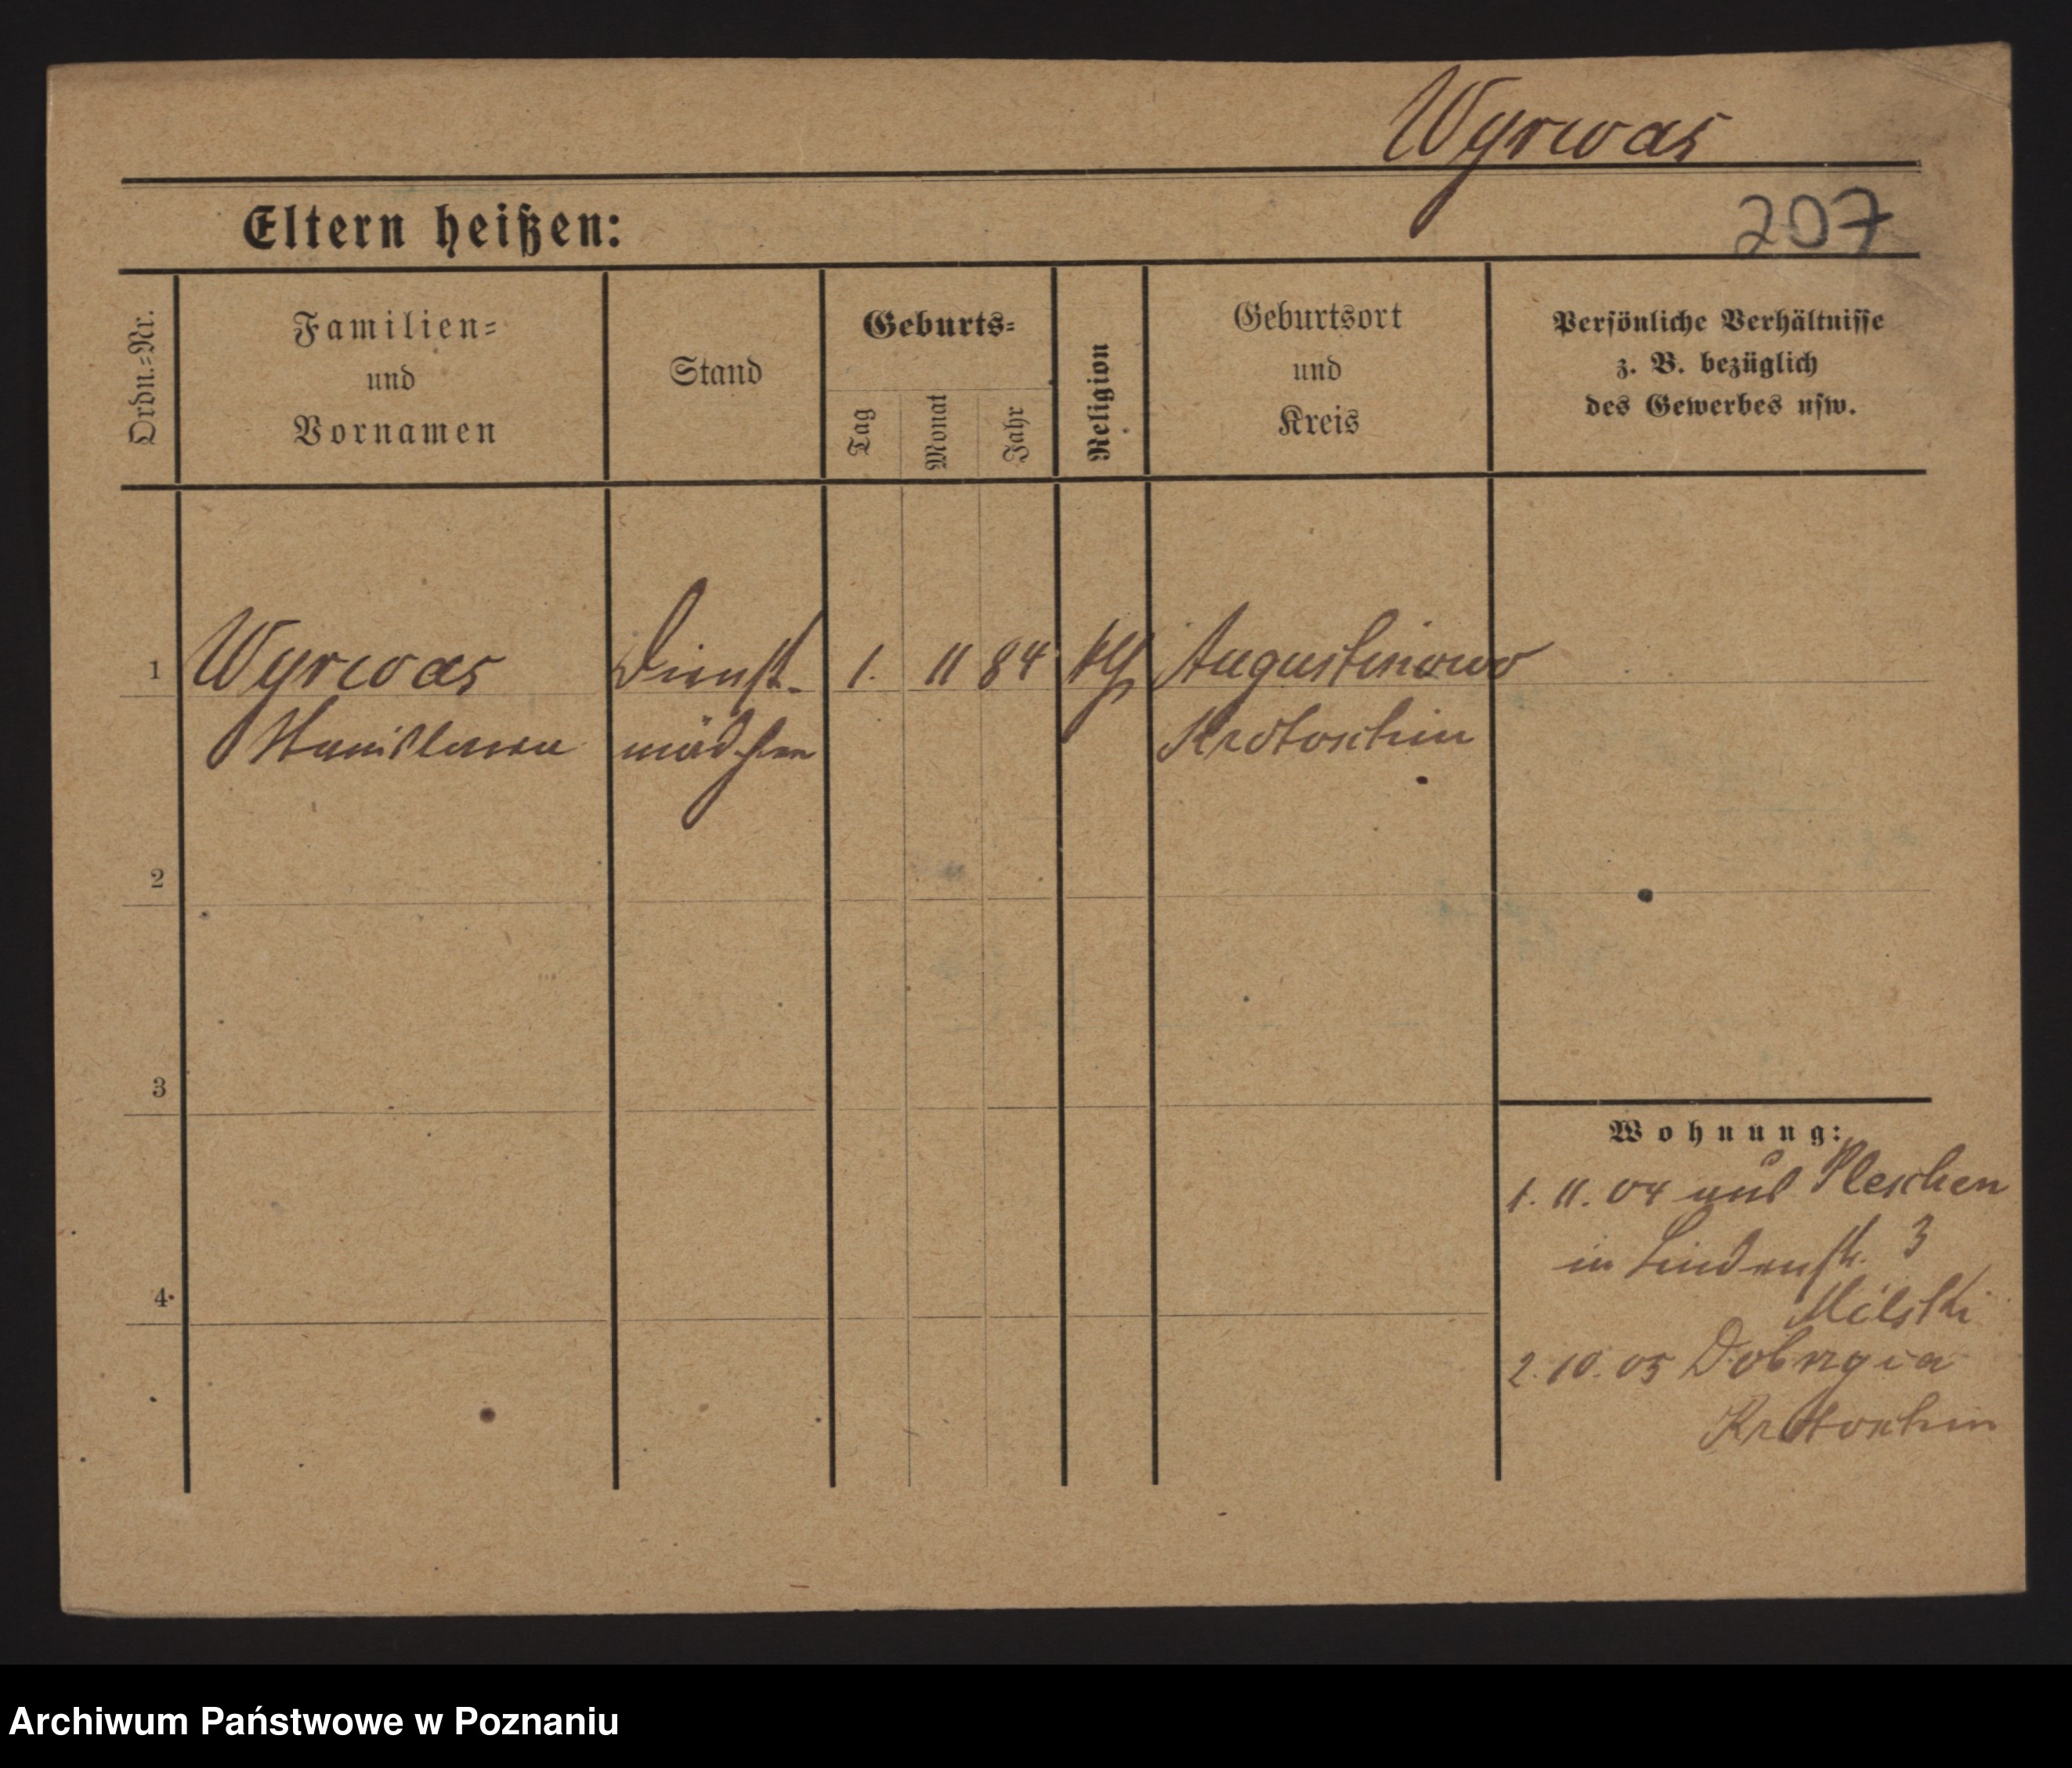 Wyrwas
Eltern heißen:
207
Ordn.=Nr.
Familien=
und
Vornamen
Stand
Geburts=
Tag
Monat
Jahr
Religion
Geburtsort
und
Kreis
Persönliche Verhältnisse
z. B. bezüglich
des Gewerbes usw.
1 Wyrwas Dienst- 1. 11 84 kth Augustinowo
Stanislawa mädchen Krotoschin
2
3
4
Wohnung:
1. 11. 04 aus Pleschen
in Lindenstr. 3
Milski
2. 10. 05
Krotoschin
Archiwum Państwowe w Poznaniu